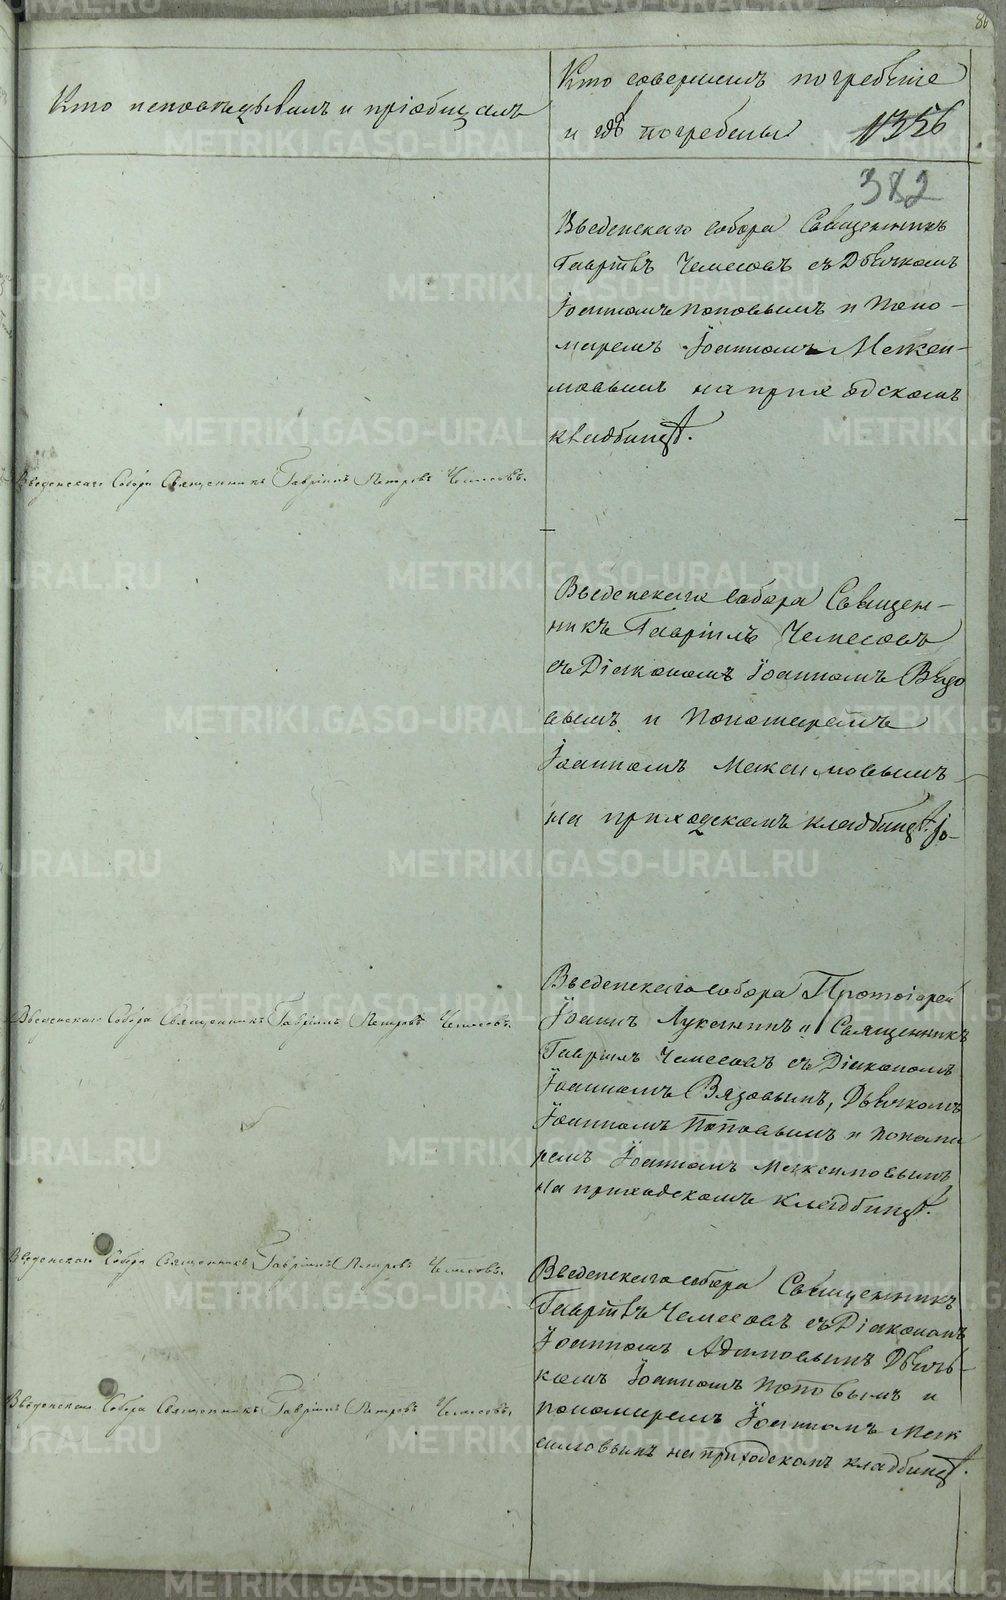 86
Кто исповѣдывалъ и пріобщалъ
Кто совершилъ погребеніе
и гдѣ погребены
1356
382
Введенскаго собора Священникъ
Гавріилъ Чемесовъ съ Дьячкомъ
Іоанномъ Поповымъ и Поно-
маремъ Іоанномъ Макси-
мовымъ на приходскомъ
кладбищѣ.
Введенскаго Собора Священникъ Гавріилъ Петровъ Чемесовъ.
Введенскаго собора Священ-
никъ Гавріилъ Чемесовъ
съ Діакономъ Іоанномъ Вязо
вымъ и Пономаремъ
Іоанномъ Максимовымъ
на приходскомъ кладбищѣ.
Введенскаго Собора Священникъ Гавріилъ Петровъ Чемесовъ.
Введенскаго собора Протоіерей
Іоаннъ Луканинъ и Священникъ
Гавріилъ Чемесовъ съ Діакономъ
Іоанномъ Вязовымъ, Дьячкомъ
Іоанномъ Поповымъ и Понома
ремъ Іоанномъ Максимовымъ
на приходскомъ кладбищѣ.
Введенскаго Собора Священникъ Гавріилъ Петровъ Чемесовъ.
Введенскаго собора Священникъ
Гавріилъ Чемесовъ съ Діакономъ
Іоанномъ Адамовымъ Дьяч-
комъ Іоанномъ Поповымъ и
пономаремъ Іоанномъ Мак
симовымъ на приходскомъ кладбищѣ.
Введенскаго Собора Священникъ Гавріилъ Петровъ Чемесовъ.
METRIKI.GASO-URAL.RU